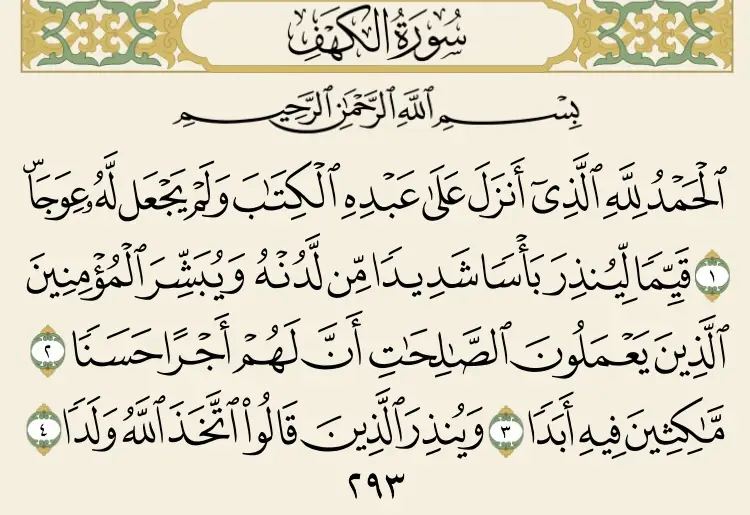 سُورَةُ الكَهۡفِ
بِسۡمِ ٱللَّهِ ٱلرَّحۡمَٰنِ ٱلرَّحِيمِ
ٱلۡحَمۡدُ لِلَّهِ ٱلَّذِيٓ أَنزَلَ عَلَىٰ عَبۡدِهِ ٱلۡكِتَٰبَ وَلَمۡ يَجۡعَل لَّهُۥ عِوَجَاۜ
١ قَيِّمٗا لِّيُنذِرَ بَأۡسٗا شَدِيدٗا مِّن لَّدُنۡهُ وَيُبَشِّرَ ٱلۡمُؤۡمِنِينَ
ٱلَّذِينَ يَعۡمَلُونَ ٱلصَّٰلِحَٰتِ أَنَّ لَهُمۡ أَجۡرًا حَسَنٗا ٢
مَّٰكِثِينَ فِيهِ أَبَدٗا ٣ وَيُنذِرَ ٱلَّذِينَ قَالُواْ ٱتَّخَذَ ٱللَّهُ وَلَدٗا ٤
٢٩٣